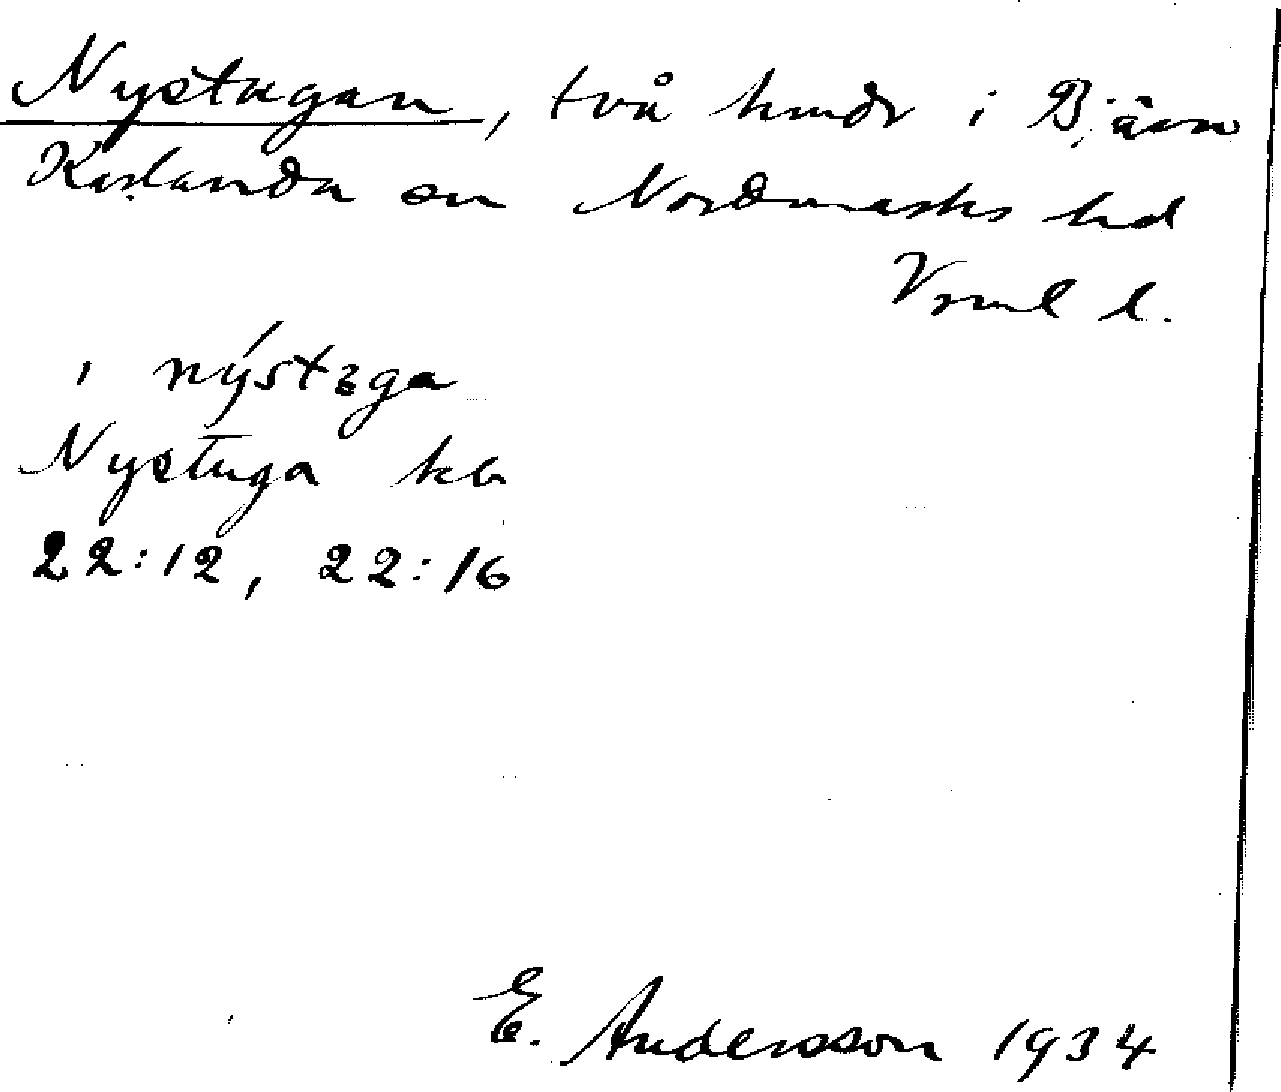 Nystugan, två hmdr i Bjärn
Karlanda sn Nordmarks hd
Vrml l.
i nýstɜga
Nystuga kb
22:12, 22:16
E. Andersson 1934